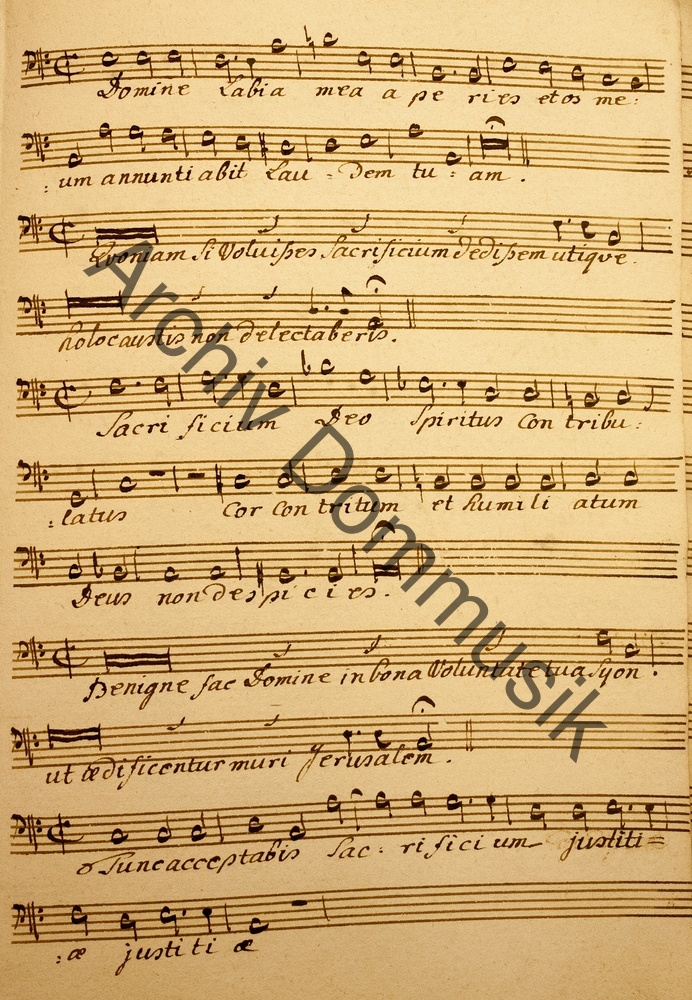 Domine Labia mea a pe ries et os me:
: um annunti abit Lau - Dem tu : am .
Qvoniam si Voluisses Sacrificium dedissem utiqve.
holocaustis non delectaberis.
Sacri ficium Deo Spiritus Con tribu:
: latus Cor Con tritum et humili atum
Deus non despi c i es.
Benigne fac Domine in bona Voluntate tua Syon.
ut ædificentur muri Jerusalem.
Tunc acceptabis Sac: ri fici um justiti=
: æ justi ti æ
Archiv Dommusik